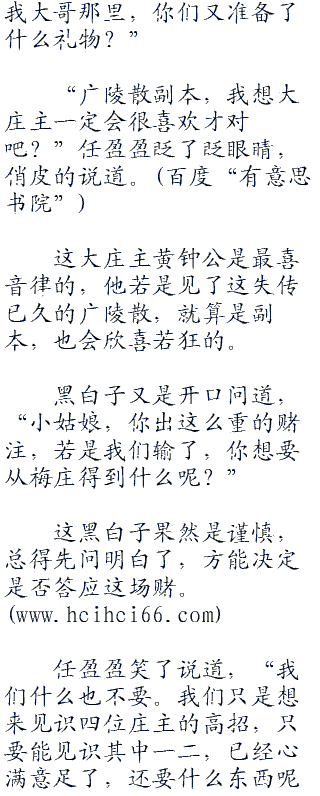 我大哥那里，你们又准备了
什么礼物？”
“广陵散副本，我想大
庄主一定会很喜欢才对
吧？”任盈盈眨了眨眼睛，
俏皮的说道。(百度“有意思
书院”)
这大庄主黄钟公是最喜
音律的，他若是见了这失传
已久的广陵散，就算是副
本，也会欣喜若狂的。
黑白子又是开口问道，
“小姑娘，你出这么重的赌
注，若是我们输了，你想要
从梅庄得到什么呢？”
这黑白子果然是谨慎，
总得先问明白了，方能决定
是否答应这场赌。
(www.hcihci66.com)
任盈盈笑了说道，“我
们什么也不要。我们只是想
来见识四位庄主的高招，只
要能见识其中一二，已经心
满意足了，还要什么东西呢